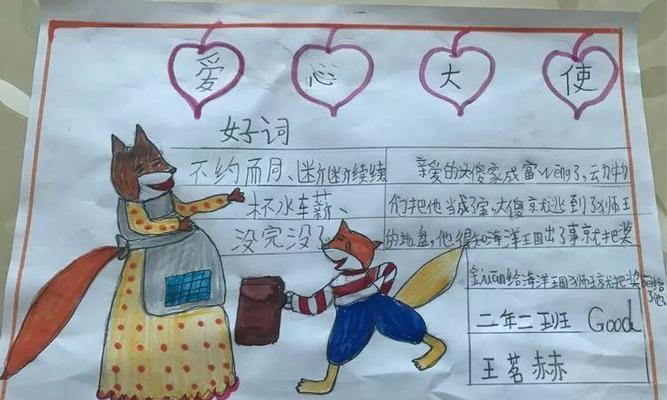 爱心大使
好词
不约而同、断断续续
杯水车薪、
没完没了
亲爱的大傻家成富了,动物
们把他当成了宝,大傻就逃到了狮王
的地盘,他得知海洋王国出了事就把奖
金给海洋王国狮王就把奖
二年二班 Good
王茗赫